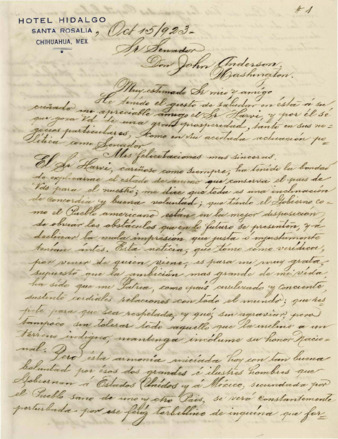 # 1
HOTEL HIDALGO
SANTA ROSALIA
CHIHUAHUA, MEX
Oct 15/923.
Sr Senador
Don John Anderson,
Washington.
Muy estimado Sr mio y amigo
He tenido el gusto de saludar en ésta á su
apreciable amigo el Sr Harvi, y por él se
que goza Vd de buena prosperidad, tanto en sus ne-
gocios particulares, como en su acertada actuación pú-
blica como Senador.
Mis felicitaciones mas sinceras.
El Sr Harvi, cariñoso como siempre, ha tenido la bondad
de explicarme el estado de animo que conserva el país de
Vds para el nuestro; me dice que todo es una inclinación
de concordia y buena voluntad; que tanto el Gobierno co-
mo el Pueblo americano estan en la mejor disposicion
de obviar los obstáculos que en lo futuro se presenten, y á
destruir la mala impresion que justa o injustamente
Esta noticia, que tiene visos verídicos
por venir de quien viene, es para mi muy grata,
supuesto que la ambición mas grande de mi vida
ha sido que mi Patria, como pais civilizado y consciente
sustente cordiales relaciones con todo el mundo; que res-
pete para que sea respetada, y que, sin agresivo, pero
tampoco sin tolerar todo aquello que la incline a un
terreno indigno, mantenga incolume su honor Nacio-
nal. Pero esta armonía iniciada hoy con tan buena
voluntad por esos dos grandes é ilustres hombres que
Gobiernan á Estados Unidos y á México, secundada por
el Pueblo sano de uno y otro País, se verá constantemente
perturbada por ese feliz torbellino de inquina que for-